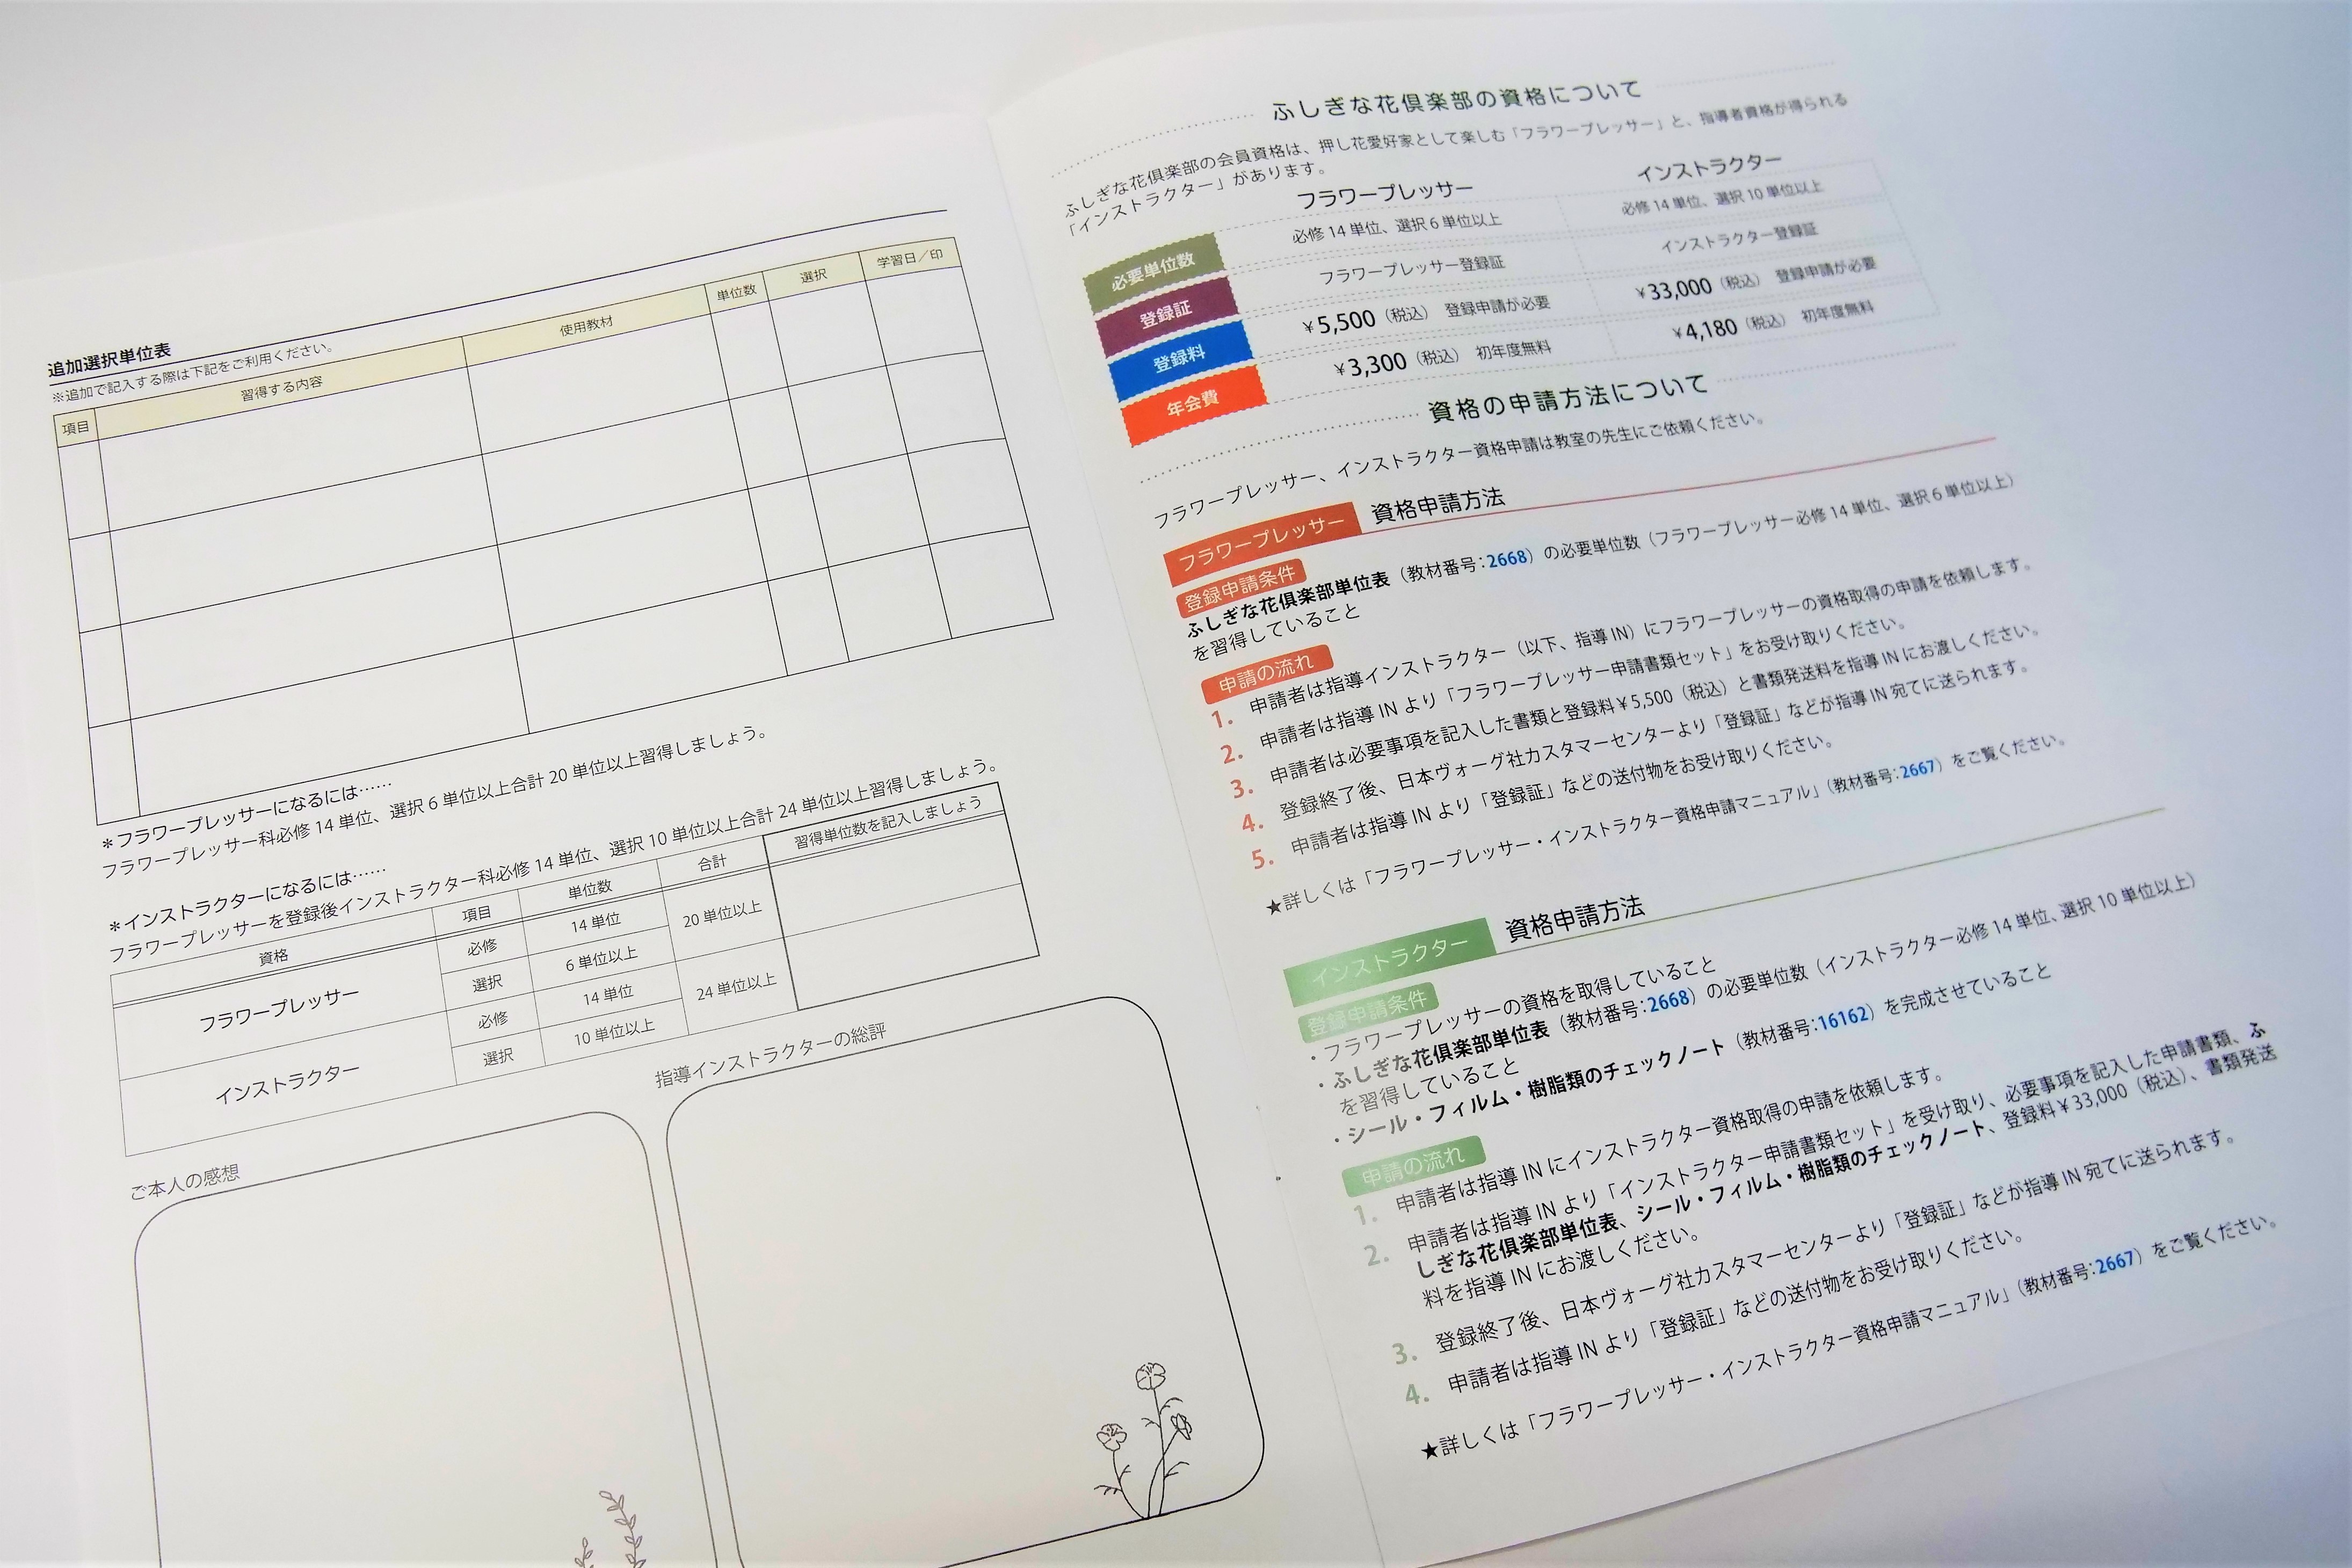 追加選択単位表
※追加で記入する際は下記をご利用ください。
項目 習得する内容 使用教材 単位数 選択 学習日／印
＊フラワープレッサーになるには……
フラワープレッサー科必修 14 単位、選択 6 単位以上合計 20 単位以上習得しましょう。
＊インストラクターになるには……
フラワープレッサーを登録後インストラクター科必修 14 単位、選択 10 単位以上合計 24 単位以上習得しましょう。
資格 項目 単位数 合計 習得単位数を記入しましょう
フラワープレッサー 必修 14 単位 20 単位以上
選択 6 単位以上
インストラクター 必修 14 単位 24 単位以上
選択 10 単位以上
ご本人の感想
指導インストラクターの総評
ふしぎな花倶楽部の資格について
ふしぎな花倶楽部の会員資格は、押し花愛好家として楽しむ「フラワープレッサー」と、指導者資格が得られる
「インストラクター」があります。
フラワープレッサー インストラクター
必要単位数 必修 14 単位、選択 6 単位以上 必修 14 単位、選択 10 単位以上
登録証 フラワープレッサー登録証 インストラクター登録証
登録料 ¥5,500（税込） 登録申請が必要 ¥33,000（税込） 登録申請が必要
年会費 ¥3,300（税込） 初年度無料 ¥4,180（税込） 初年度無料
資格の申請方法について
フラワープレッサー、インストラクター資格申請は教室の先生にご依頼ください。
フラワープレッサー 資格申請方法
登録申請条件
ふしぎな花倶楽部単位表（教材番号：2668）の必要単位数（フラワープレッサー必修 14 単位、選択 6 単位以上）
を習得していること
申請の流れ
1. 申請者は指導インストラクター（以下、指導 IN）にフラワープレッサーの資格取得の申請を依頼します。
2. 申請者は指導 IN より「フラワープレッサー申請書類セット」をお受け取りください。
3. 申請者は必要事項を記入した書類と登録料¥5,500（税込）と書類発送料を指導 IN にお渡しください。
4. 登録終了後、日本ヴォーグ社カスタマーセンターより「登録証」などが指導 IN 宛てに送られます。
5. 申請者は指導 IN より「登録証」などの送付物をお受け取りください。
★詳しくは「フラワープレッサー・インストラクター資格申請マニュアル」（教材番号：2667）をご覧ください。
インストラクター 資格申請方法
登録申請条件
・フラワープレッサーの資格を取得していること
・ふしぎな花倶楽部単位表（教材番号：2668）の必要単位数（インストラクター必修 14 単位、選択 10 単位以上）
を習得していること
・シール・フィルム・樹脂類のチェックノート（教材番号：16162）を完成させていること
申請の流れ
1. 申請者は指導 IN にインストラクター資格取得の申請を依頼します。
2. 申請者は指導 IN より「インストラクター申請書類セット」を受け取り、必要事項を記入した申請書類、ふ
しぎな花倶楽部単位表、シール・フィルム・樹脂類のチェックノート、登録料¥33,000（税込）、書類発送
料を指導 IN にお渡しください。
3. 登録終了後、日本ヴォーグ社カスタマーセンターより「登録証」などが指導 IN 宛てに送られます。
4. 申請者は指導 IN より「登録証」などの送付物をお受け取りください。
★詳しくは「フラワープレッサー・インストラクター資格申請マニュアル」（教材番号：2667）をご覧ください。